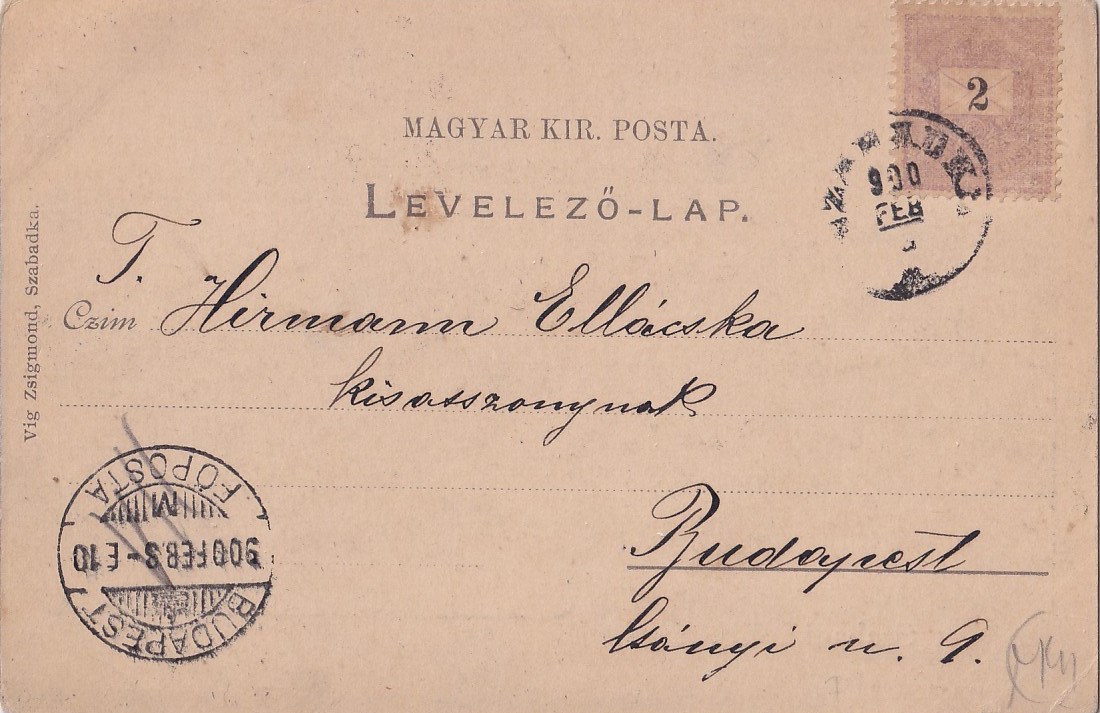 2
MAGYAR KIR. POSTA.
LEVELEZŐ-LAP.
900
FEB
T.
Czim Hirmann Ellácska
kisasszonynak
Budapest
Csányi u. 9.
Vig Zsigmond, Szabadka.
BUDAPEST
900 FEB. 8 - E 10
M
FŐPOSTA